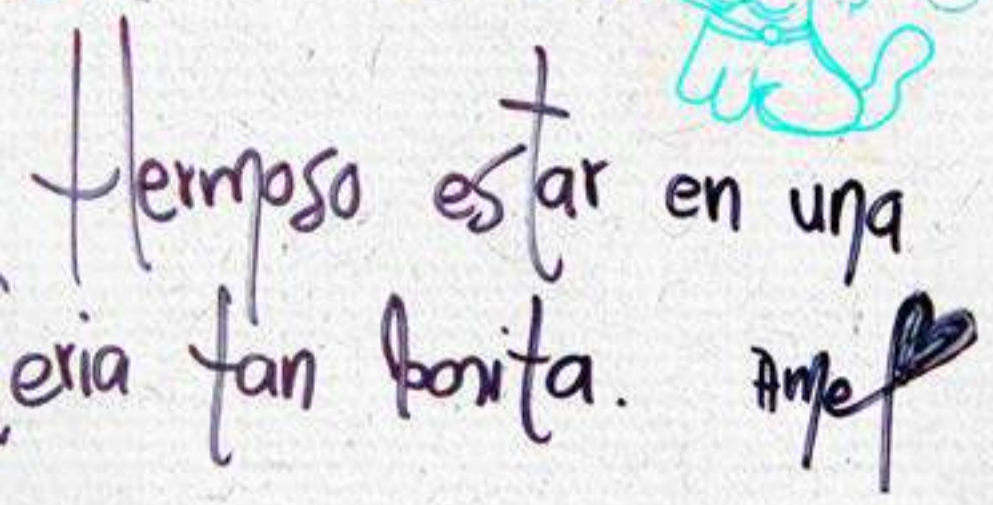 Hermoso estar en una
eria tan bonita. Ame